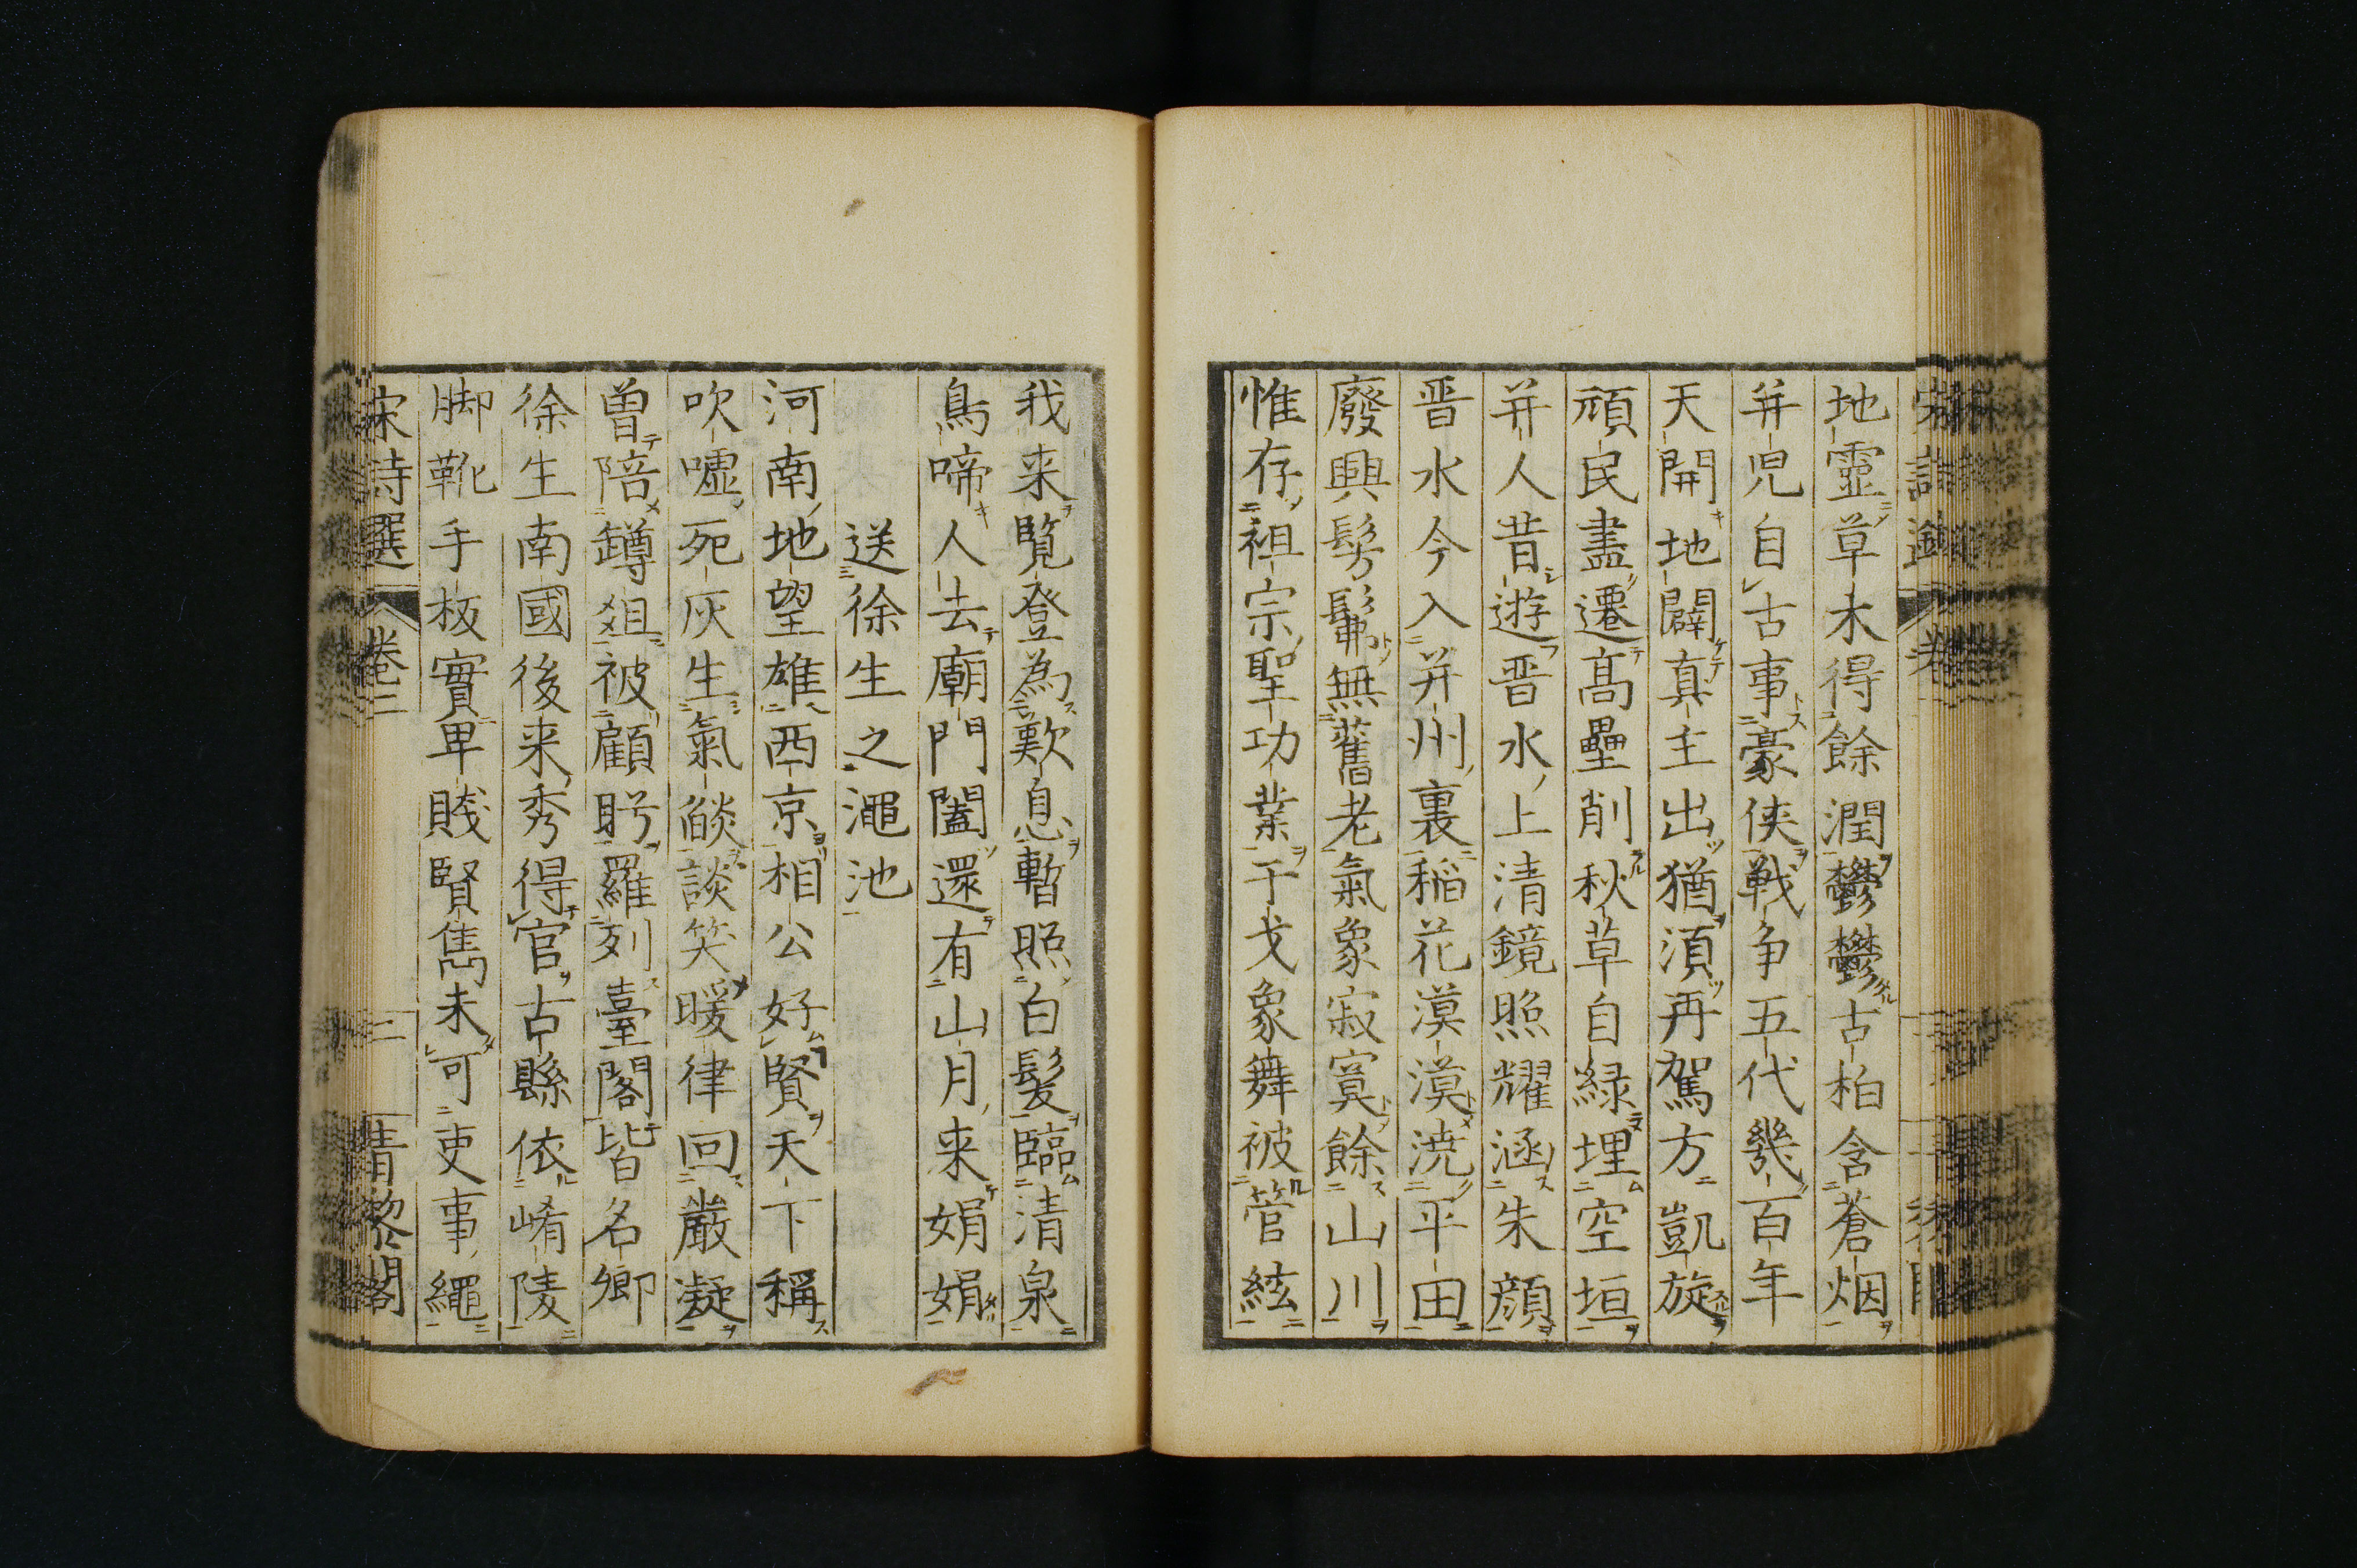 地靈草木得餘潤鬱鬱古柏含蒼烟
并兒自古事豪俠戰争五代幾百年
天開地闢真主出猶湏再駕方凱旋
頑民盡遷髙壘削秋草自緑埋空垣
并人昔遊晋水上清鏡照耀涵朱顔
晋水今入并州裏稲花漠漠澆平田
廢興髣髴無舊老氣象寂寞餘山川
惟存祖宗聖功業干戈象舞被管絃
我来覽登為歎息暫照白髪臨清泉
鳥啼人去廟門闔還有山月来娟娟
送徐生之澠池
河南地望雄西京相公好賢天下稱
吹嘘死灰生氣燄談笑暖律回嚴凝
曽陪罇爼被顧盻羅列臺閣皆名卿
徐生南國後来秀得官古縣依崤陵
脚靴手板實卑賤賢雋未可吏事繩
宋詩選 卷二 二 青黎閣